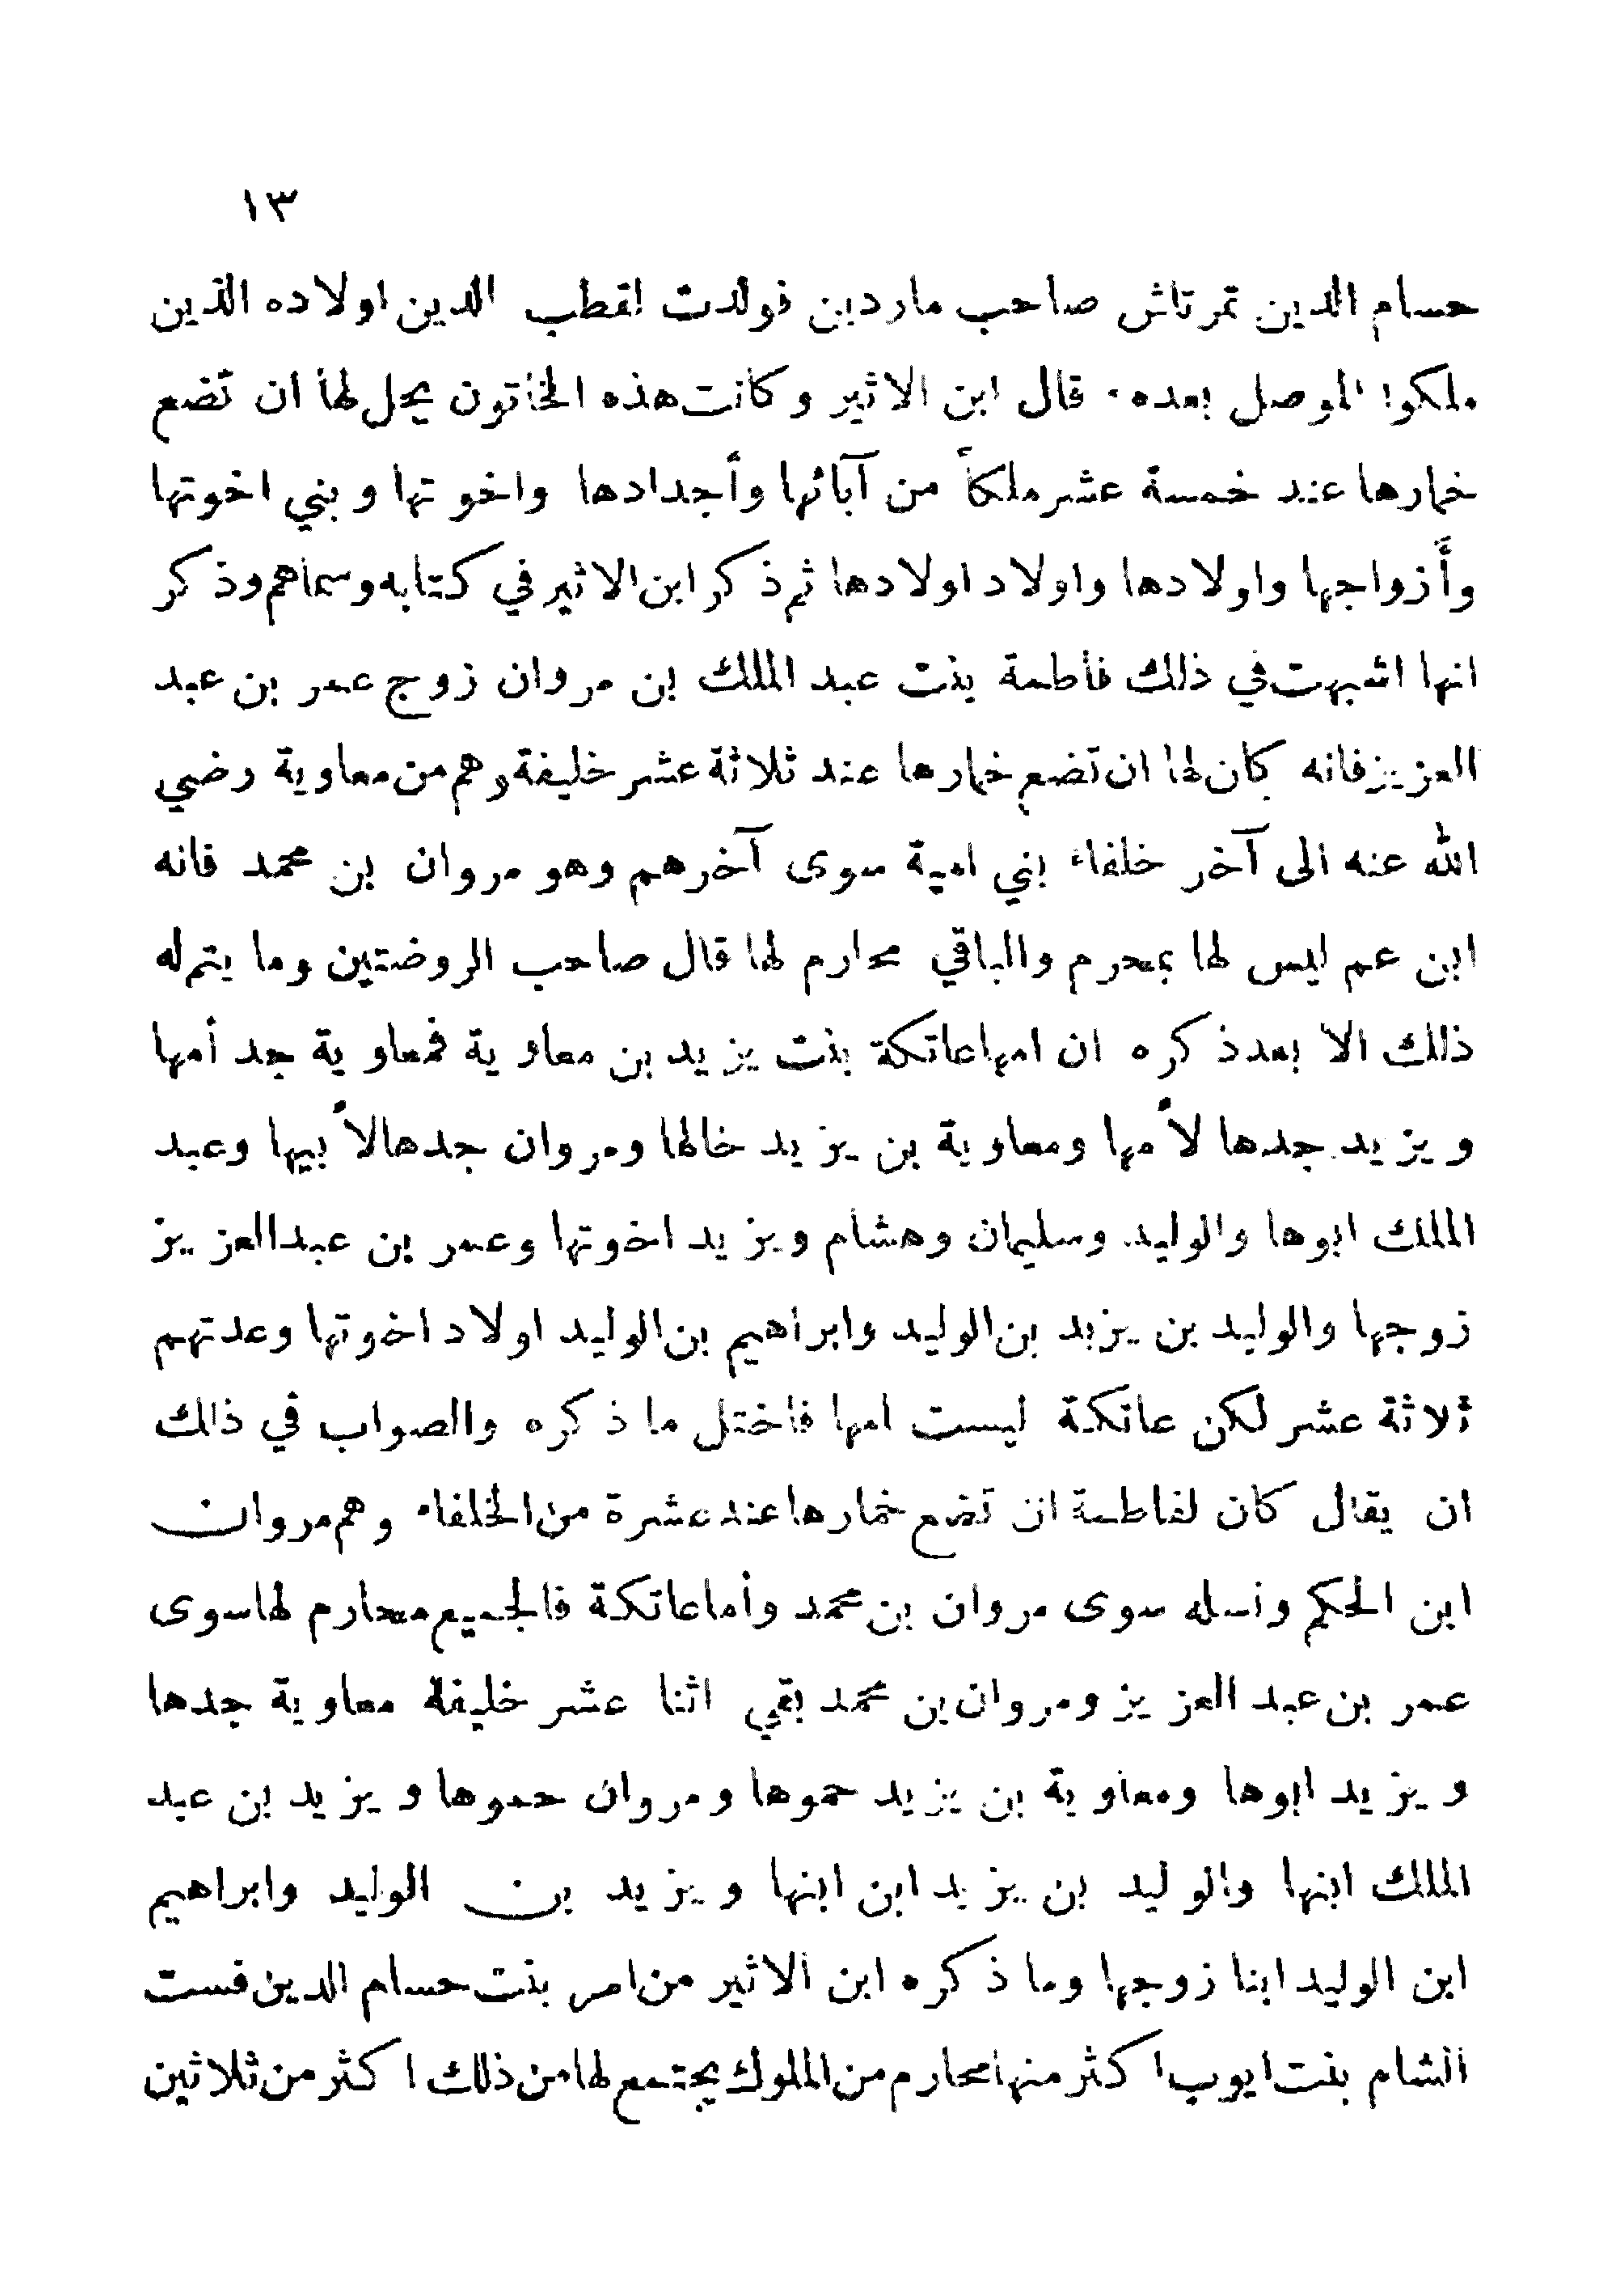 ١٣
حسام الدين تمرتاش صاحب ماردين فولدت لقطب الدين اولاده الذين
ملكوا الموصل بعده · قال ابن الاثير وكانت هذه الخاتون يحل لها أن تضع
خمارها عند خمسة عشر ملكاً من آبائها وأجدادها واخوتها وبني اخوتها
وأَزواجها واولادها واولاد اولادها ثم ذكر ابن الاثير في كتابه وسماهم وذكر
انها اشبهت في ذلك فاطمة بنت عبد الملك بن مروان زوج عمر بن عبد
العزيز فانه كان لها ان تضع خمارها عند ثلاثة عشر خليفة وهم من معاوية رضي
الله عنه الى آخر خلفاء بني امية سوى آخرهم وهو مروان بن محمد فانه
ابن عم ليس لها بمحرم والباقي محارم لها قال صاحب الروضتين وما يتم له
ذلك الا بعد ذكره ان امها عاتكة بنت يزيد بن معاوية فمعاوية جد أمها
ويزيد جدها لأمها ومعاوية بن يزيد خالها ومروان جدها لأبيها وعبد
الملك ابوها والوليد وسليمان وهشام ويزيد اخوتها وعمر بن عبد العزيز
زوجها والوليد بن يزيد بن الوليد وابراهيم بن الوليد اولاد اخوتها وعدتهم
ثلاثة عشر لكن عاتكة ليست امها فاختل ما ذكره والصواب في ذلك
ان يقال كان لفاطمة ان تضع خمارها عند عشرة من الخلفاء وهم مروان
ابن الحكم ونسله سوى مروان بن محمد وأما عاتكة فالجميع محارم لها سوى
عمر بن عبد العزيز ومروان بن محمد بقي اثنا عشر خليفة معاوية جدها
ويزيد ابوها ومعاوية بن يزيد حموها ومروان حموها ويزيد بن عبد
الملك ابنها والوليد بن يزيد ابن ابنها ويزيد بن الوليد وابراهيم
ابن الوليد ابنا زوجها وما ذكره ابن الاثير من امر بنت حسام الدين فست
الشام بنت ايوب اكثر منها محارم من الملوك يجتمع لها من ذلك اكثر من ثلاثين